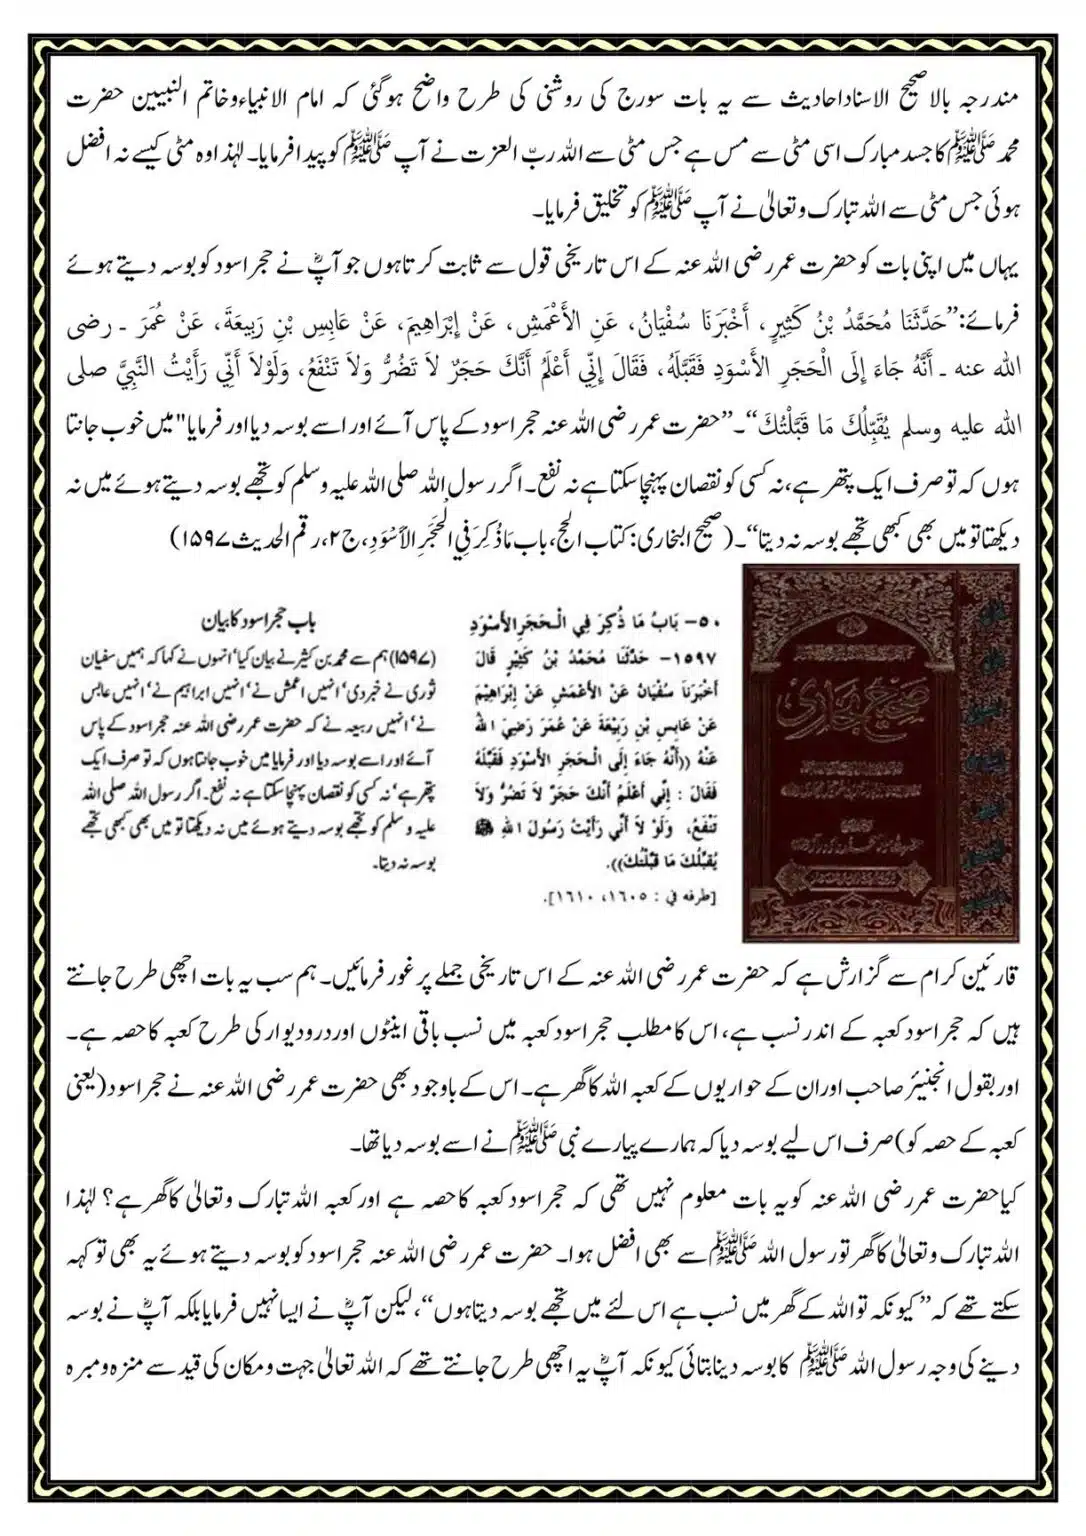 مندرجہ بالا صحیح الاسناد احادیث سے یہ بات سورج کی روشنی کی طرح واضح ہوگئی کہ امام الانبیاء و خاتم النبیین حضرت
محمد ﷺ کا جسد مبارک اسی مٹی سے مس ہے جس مٹی سے اللہ ربّ العزت نے آپ ﷺ کو پیدا فرمایا۔ لہٰذا وہ مٹی کیسے نہ افضل
ہوئی جس مٹی سے اللہ تبارک و تعالیٰ نے آپ ﷺ کو تخلیق فرمایا۔
یہاں میں اپنی بات کو حضرت عمر رضی اللہ عنہ کے اس تاریخی قول سے ثابت کرتا ہوں جو آپؓ نے حجر اسود کو بوسہ دیتے ہوئے
فرمائے: ”حَدَّثَنَا مُحَمَّدُ بْنُ كَثِيرٍ، أَخْبَرَنَا سُفْيَانُ، عَنِ الأَعْمَشِ، عَنْ إِبْرَاهِيمَ، عَنْ عَابِسِ بْنِ رَبِيعَةَ، عَنْ عُمَرَ ـ رضى
الله عنه ـ أَنَّهُ جَاءَ إِلَى الْحَجَرِ الأَسْوَدِ فَقَبَّلَهُ، فَقَالَ إِنِّي أَعْلَمُ أَنَّكَ حَجَرٌ لاَ تَضُرُّ وَلاَ تَنْفَعُ، وَلَوْلاَ أَنِّي رَأَيْتُ النَّبِيَّ صلى
الله عليه وسلم يُقَبِّلُكَ مَا قَبَّلْتُكَ“۔ ”حضرت عمر رضی اللہ عنہ حجر اسود کے پاس آئے اور اسے بوسہ دیا اور فرمایا "میں خوب جانتا
ہوں کہ تو صرف ایک پتھر ہے، نہ کسی کو نقصان پہنچا سکتا ہے نہ نفع۔ اگر رسول اللہ صلی اللہ علیہ وسلم کو تجھے بوسہ دیتے ہوئے میں نہ
دیکھتا تو میں بھی کبھی تجھے بوسہ نہ دیتا“۔ (صحیح البخاری: کتاب الحج، باب مَا ذُكِرَ فِي الْحَجَرِ الأَسْوَدِ، ج ۲، رقم الحدیث ۱۵۹۷)
٥٠- بَابُ مَا ذُكِرَ فِي الْحَجَرِ الأَسْوَدِ
١٥٩٧- حَدَّثَنَا مُحَمَّدُ بْنُ كَثِيْرٍ قَالَ
أَخْبَرَنَا سُفْيَانُ عَنْ الأَعْمَشِ عَنْ إِبْرَاهِيْمَ
عَنْ عَابِسِ بْنِ رَبِيْعَةَ عَنْ عُمَرَ رَضِيَ اللهُ
عَنْهُ ((أَنَّهُ جَاءَ إِلَى الْحَجَرِ الأَسْوَدِ فَقَبَّلَهُ
فَقَالَ: إِنِّي أَعْلَمُ أَنَّكَ حَجَرٌ لاَ تَضُرُّ وَلاَ
تَنْفَعُ، وَلَوْ لاَ أَنِّي رَأَيْتُ رَسُوْلَ اللهِ ﷺ
يُقَبِّلُكَ مَا قَبَّلْتُكَ)).
[طرفه في : ١٦٠٥، ١٦١٠].
باب حجر اسود کا بیان
(۱۵۹۷) ہم سے محمد بن کثیر نے بیان کیا‘ انہوں نے کہا کہ ہمیں سفیان
ثوری نے خبر دی‘ انہیں اعمش نے‘ انہیں ابراہیم نے‘ انہیں عابس
نے‘ انہیں ربیعہ نے کہ حضرت عمر رضی اللہ عنہ حجر اسود کے پاس
آئے اور اسے بوسہ دیا اور فرمایا میں خوب جانتا ہوں کہ تو صرف ایک
پتھر ہے‘ نہ کسی کو نقصان پہنچا سکتا ہے نہ نفع۔ اگر رسول اللہ صلی اللہ
علیہ و سلم کو تجھے بوسہ دیتے ہوئے میں نہ دیکھتا تو میں بھی کبھی تجھے
بوسہ نہ دیتا۔
صحیح بخاری
قارئین کرام سے گزارش ہے کہ حضرت عمر رضی اللہ عنہ کے اس تاریخی جملے پر غور فرمائیں۔ ہم سب یہ بات اچھی طرح جانتے
ہیں کہ حجر اسود کعبہ کے اندر نسب ہے، اس کا مطلب حجر اسود کعبہ میں نسب باقی اینٹوں اور درودیوار کی طرح کعبہ کا حصہ ہے۔
اور بقول انجنیئر صاحب اور ان کے حواریوں کے کعبہ اللہ کا گھر ہے۔ اس کے باوجود بھی حضرت عمر رضی اللہ عنہ نے حجر اسود (یعنی
کعبہ کے حصہ کو) صرف اس لیے بوسہ دیا کہ ہمارے پیارے نبی ﷺ نے اسے بوسہ دیا تھا۔
کیا حضرت عمر رضی اللہ عنہ کو یہ بات معلوم نہیں تھی کہ حجر اسود کعبہ کا حصہ ہے اور کعبہ اللہ تبارک و تعالیٰ کا گھر ہے؟ لہٰذا
اللہ تبارک و تعالیٰ کا گھر تو رسول اللہ ﷺ سے بھی افضل ہوا۔ حضرت عمر رضی اللہ عنہ حجر اسود کو بوسہ دیتے ہوئے یہ بھی تو کہہ
سکتے تھے کہ ”کیونکہ تو اللہ کے گھر میں نسب ہے اس لئے میں تجھے بوسہ دیتا ہوں“، لیکن آپؓ نے ایسا نہیں فرمایا بلکہ آپؓ نے بوسہ
دینے کی وجہ رسول اللہ ﷺ کا بوسہ دینا بتائی کیونکہ آپؓ یہ اچھی طرح جانتے تھے کہ اللہ تعالیٰ جہت و مکان کی قید سے منزہ و مبرہ